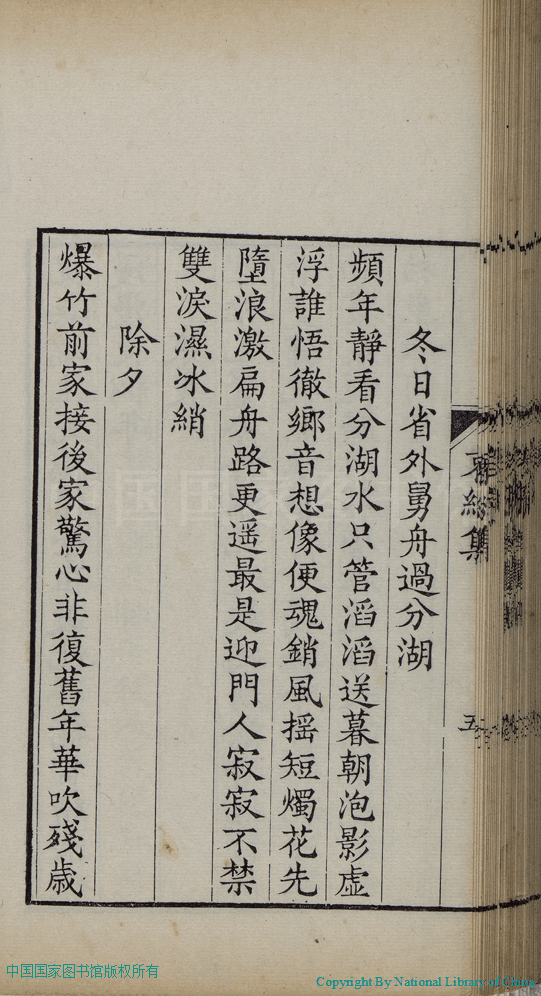 冬日省外舅舟過分湖
頻年靜看分湖水只管滔滔送暮朝泡影虛
浮誰悟徹鄉音想像便魂銷風摇短燭花先
墮浪激扁舟路更遥最是迎門人寂寂不禁
雙淚濕冰綃
除夕
爆竹前家接後家驚心非復舊年華吹殘歲
五
中国国家图书馆版权所有
Copyright By National Library of China